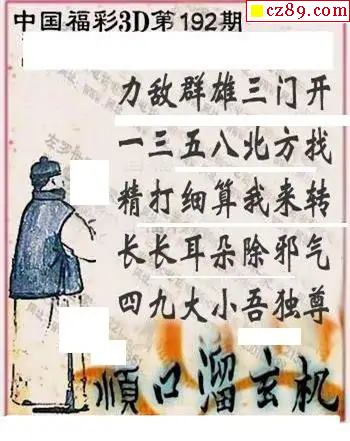 cz89.com
中国福彩3D第192期
力敌群雄三门开
一三五八北方找
精打细算我来转
长长耳朵除邪气
四九大小吾独尊
顺口溜玄机